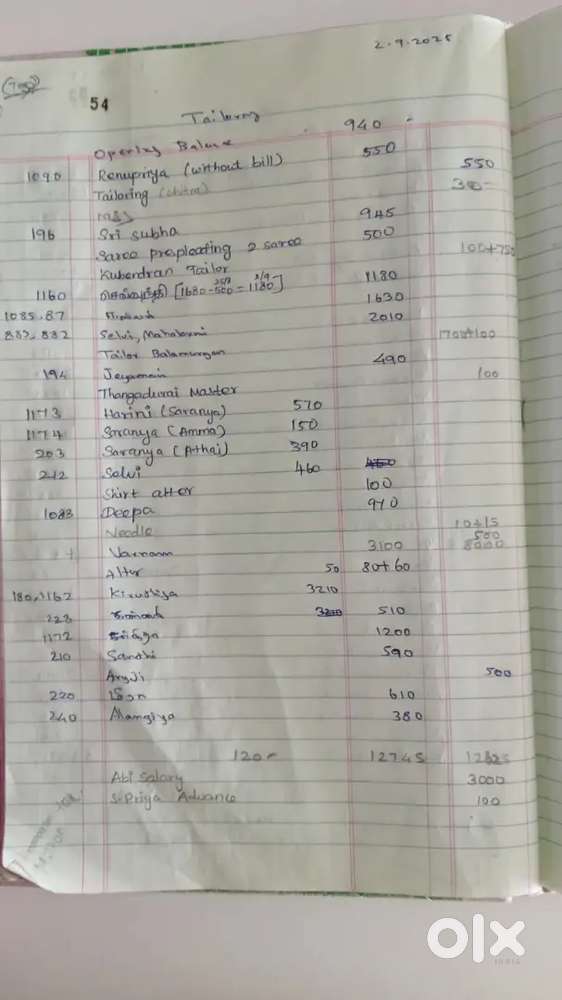 2.9.2025
54
Tailoring
Opening Balance 940
1090 Renupriya (without bill) 550 550
Tailoring
196 Sri Subha 945
Saree prepleating 2 saree 500 100+750
Kubendran Tailor
1160 [1680-500=1180] 1180
1085.87 1630
883,882 Selvi, Mahalaxmi 2010
Tailor Balamurugan 1700+100
194 490
Thangadurai Master 100
1173 Harini (Saranya) 570
1174 Saranya (Amma) 150
203 Saranya (Athai) 390
212 Selvi 460 460
Shirt alter 100
1083 Deepa 970
Needle 10+15
500
Varnam 3100 8000
Alter 50 80+60
180,1162 3210
223 3200 510
1172 1200
210 Sandhi 590
500
220 610
240 380
120 12745
Abi Salary 3000
S.Priya Advance 100
olx
INDIA